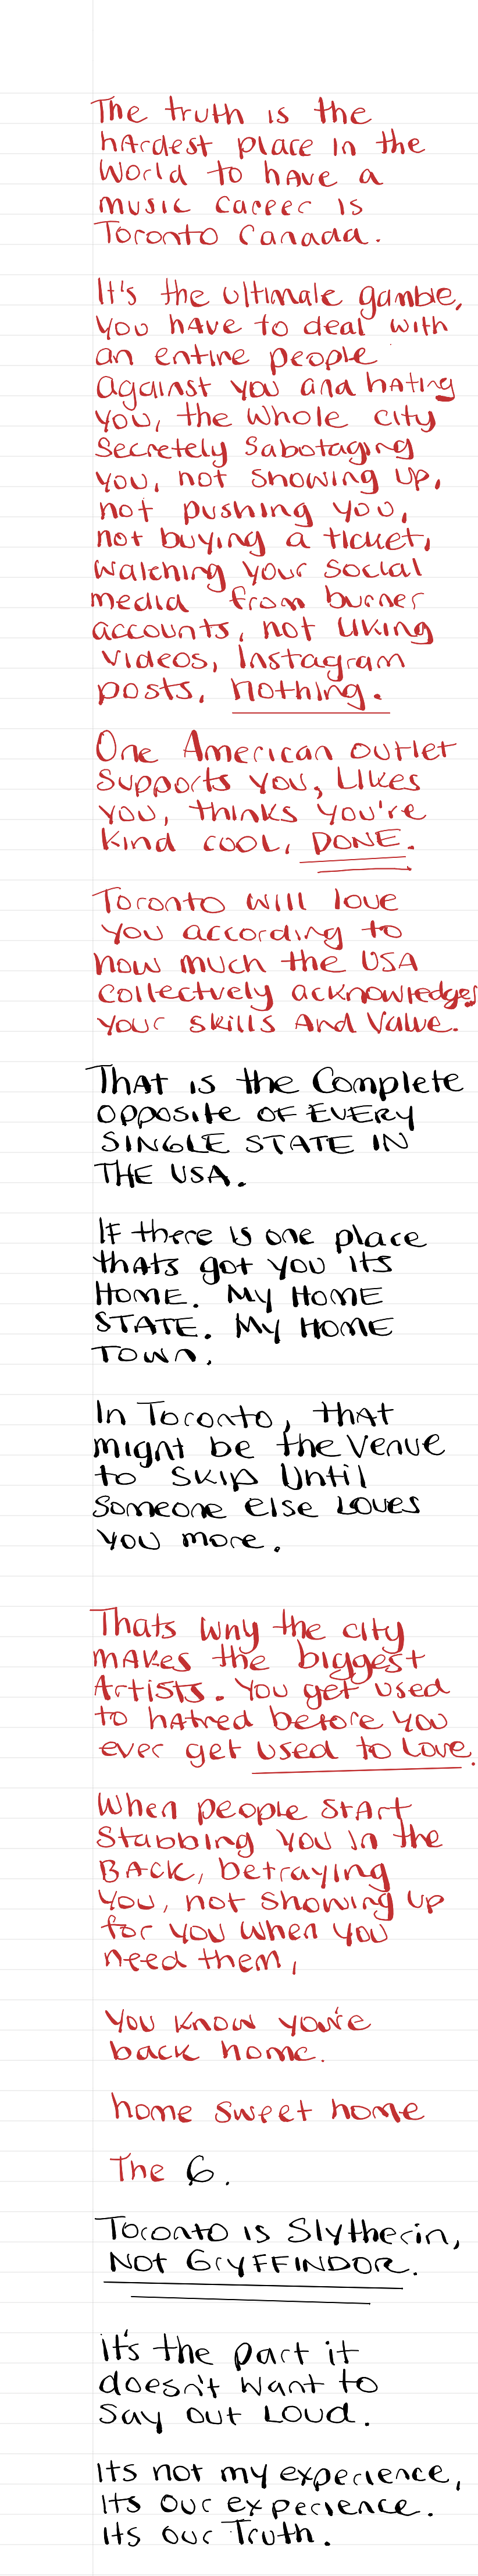 The truth is the
hardest place in the
World to have a
music career is
Toronto Canada.
It's the ultimate gamble,
you have to deal with
an entire people
against you and hating
you, the whole city
Secretely Sabotaging
you, not showing up,
not pushing you,
not buying a ticket,
watching your social
media from burner
accounts, not liking
videos, Instagram
posts, nothing.
One American outlet
Supports you, Likes
you, thinks you're
kind cool, DONE.
Toronto will love
you according to
how much the USA
collectively acknowledges
your skills And Value.
That is the Complete
opposite OF EVERY
SINGLE STATE IN
THE USA.
IF there is one place
thats got you its
HOME. My HOME
STATE. My HOME
TOWN.
In Toronto, that
might be the Venue
to skip Until
Someone else Loves
you more.
Thats why the city
makes the biggest
Artists. You get used
to hatred before you
ever get used to Love.
When people start
Stabbing you in the
BACK, betraying
you, not showing up
for you when you
need them,
You know you're
back home.
home sweet home
The 6.
Toronto is Slytherin,
NOT GryFFINDOR.
it's the part it
doesn't want to
say out Loud.
Its not my experience,
Its our experience.
Its our Truth.